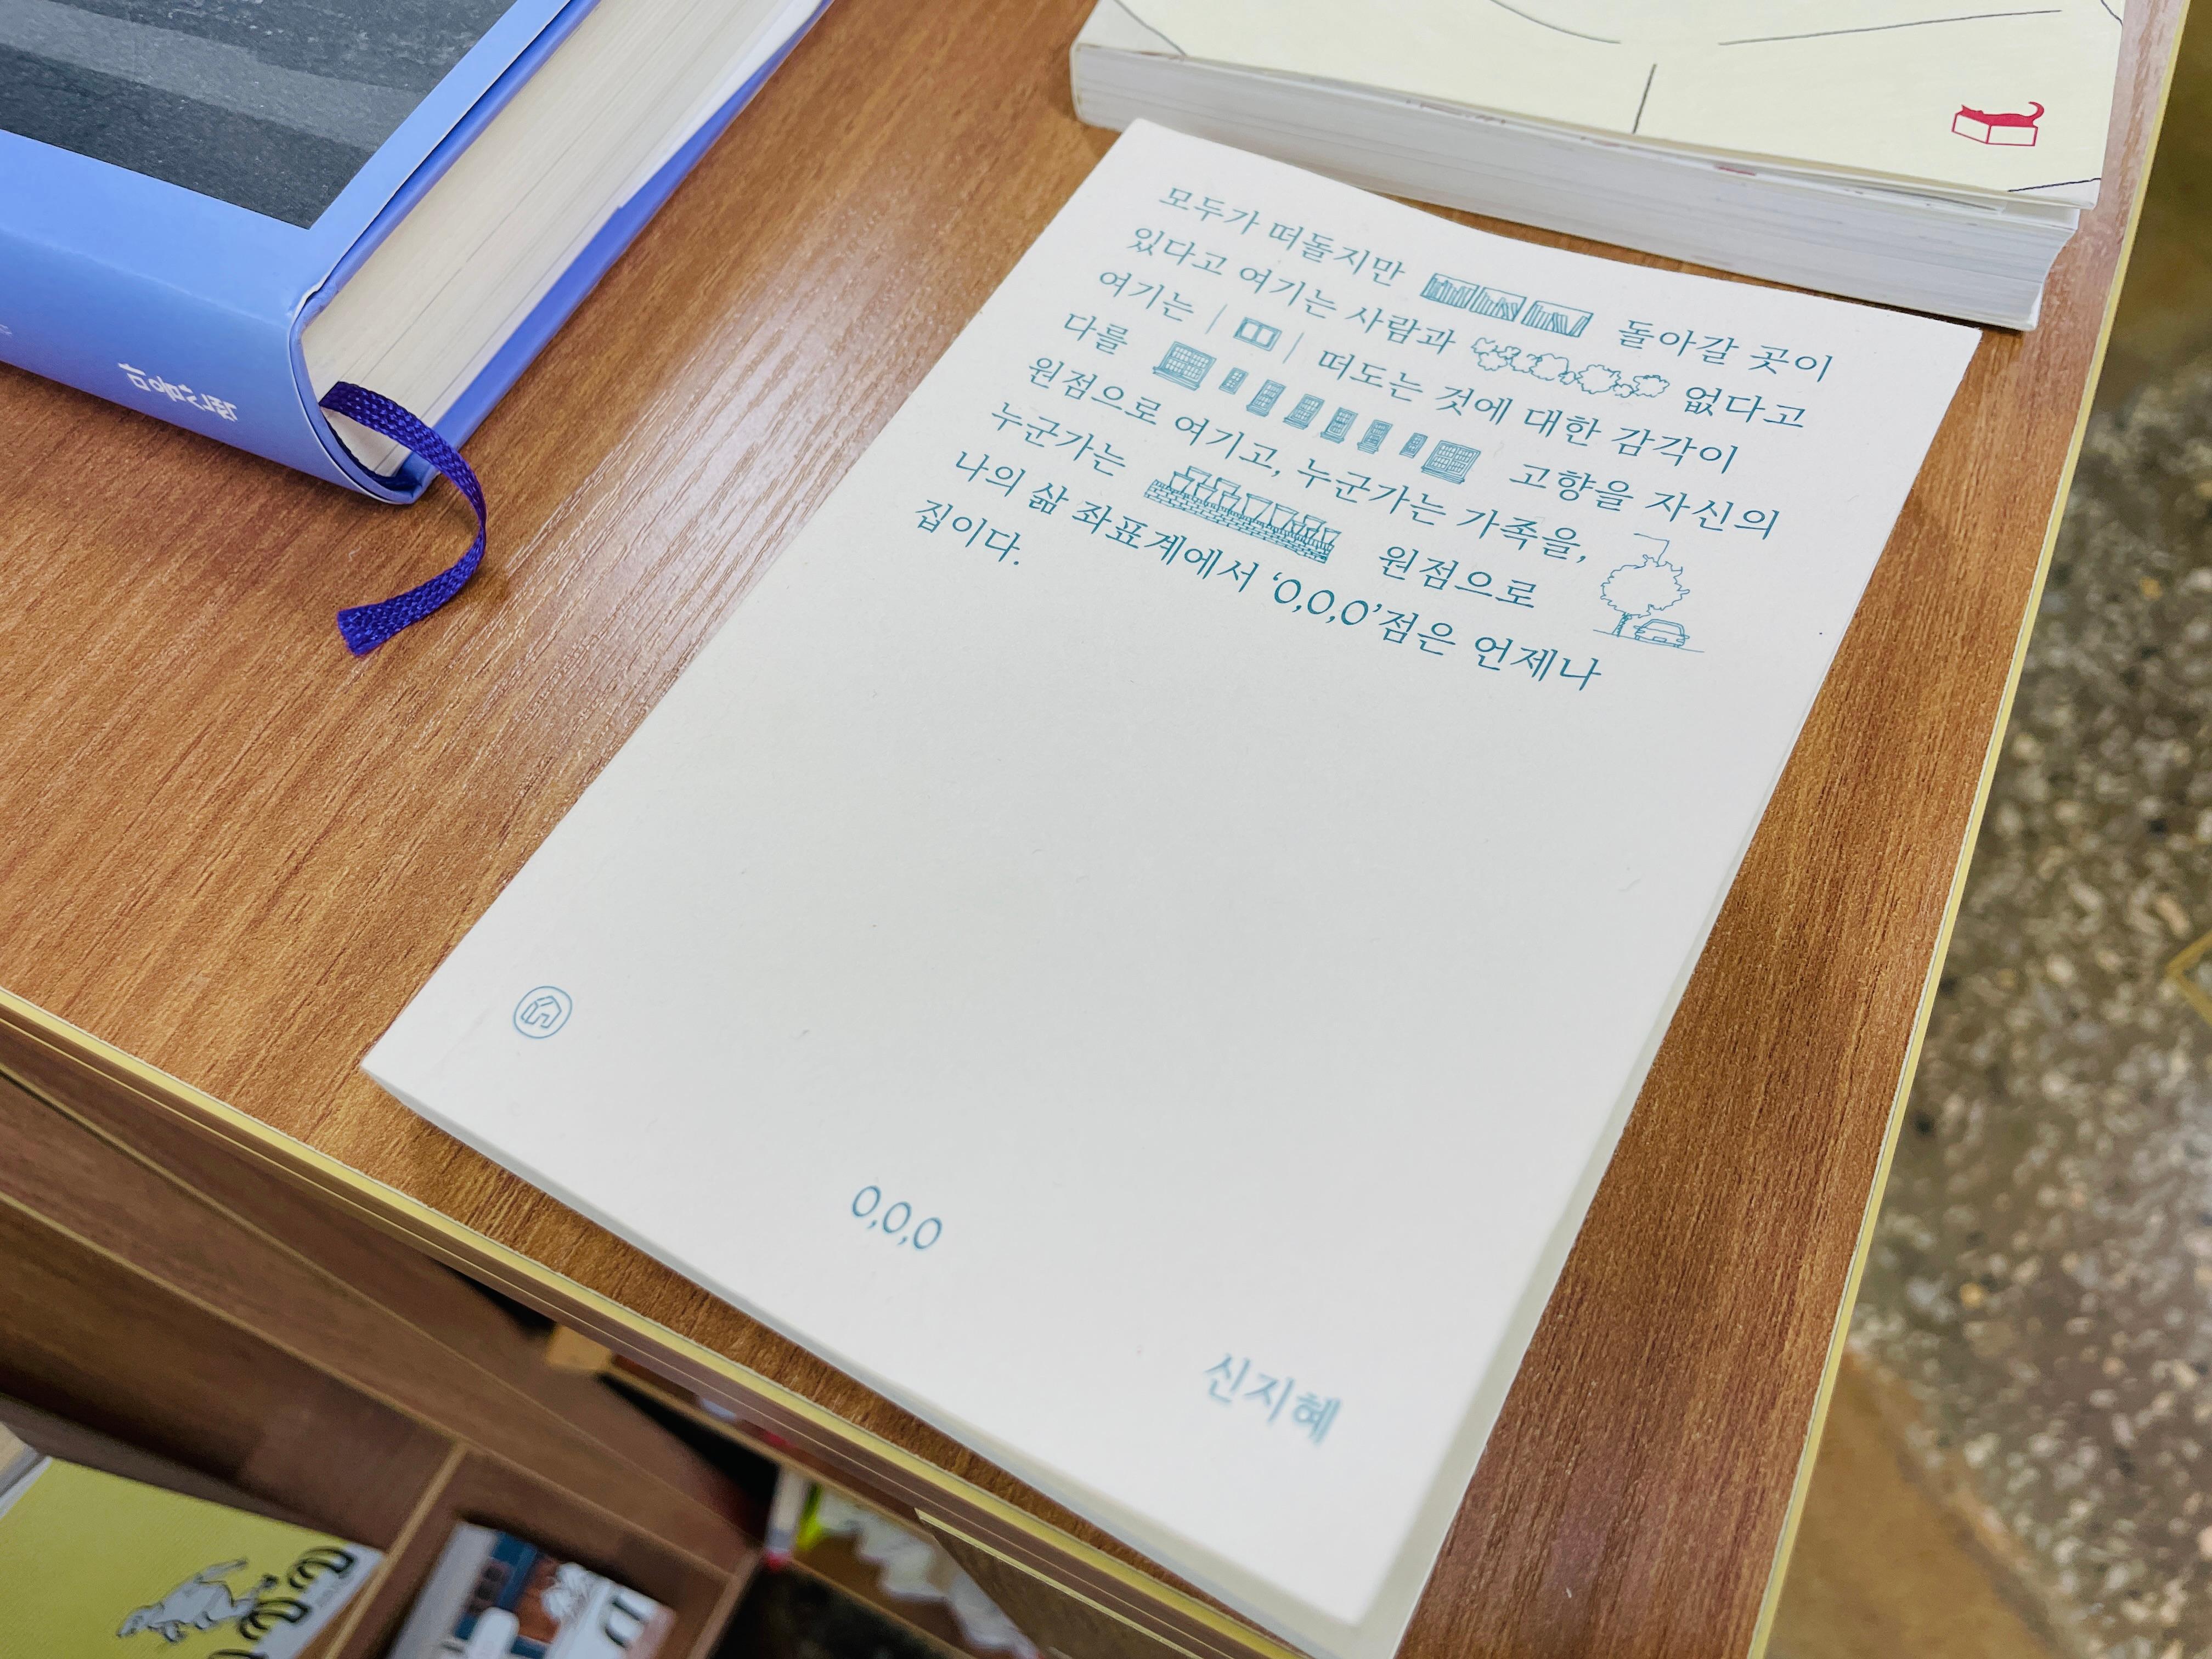 모두가 떠돌지만 돌아갈 곳이
있다고 여기는 사람과 없다고
여기는 | | 떠도는 것에 대한 감각이
다를 고향을 자신의
원점으로 여기고, 누군가는 가족을,
누군가는 원점으로
나의 삶 좌표계에서 ‘0,0,0’점은 언제나
집이다.
0,0,0
신지혜